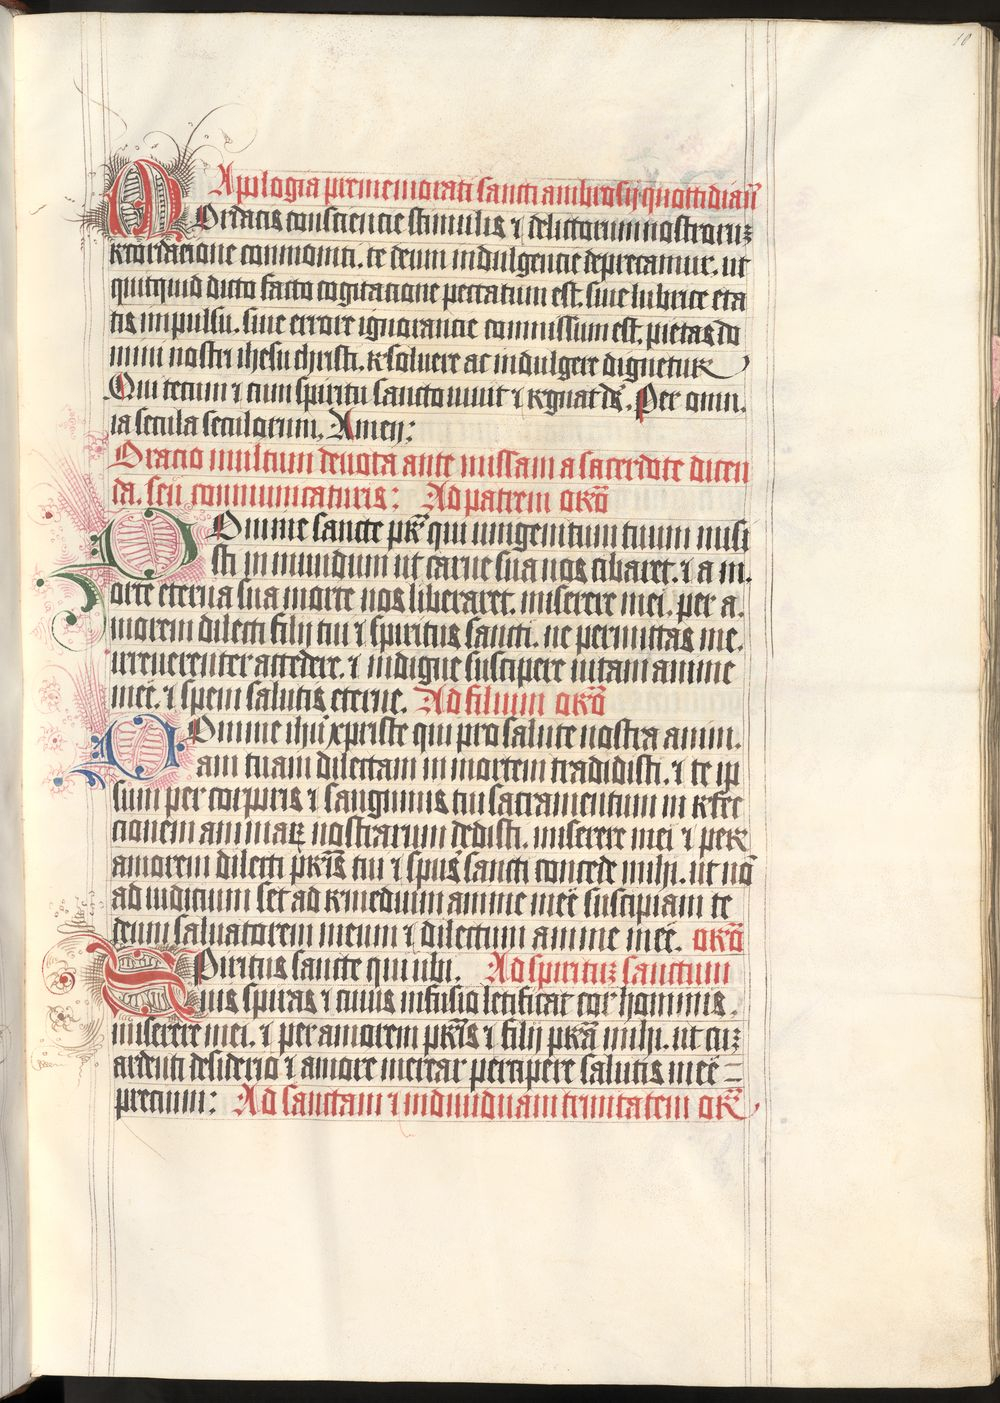 10
Apologia prememorati sancti ambrosij quottidiañ
MOrdacis consciencie stimulis ⁊ delictorum nostroruꝫ
recordacione commoniti. te deum indulgencie deprecamur. ut
quitquid dicto facto cogitacione peccatum est. siue lubrice eta
tis impulsu. siue errore ignorancie commissum est. pietas do
mini nostri ihesu christi. resoluere ac indulgere dignetur
Qui tecum ⁊ cum spiritu sancto uiuit ⁊ regnat ds̄. Per omn.
ia secula seculorum. Amen:
Oracio multum deuota ante missam a sacerdote dicen
da. seu communicaturis: Ad patrem orō
DOmine sancte pr̄ qui unigenitum tuum misi
sti in mundum ut carne sua nos cibaret. ⁊ a m.
orte eterna sua morte nos liberaret. miserere mei. per a.
morem dilecti filij tui ⁊ spiritus sancti. ne permittas me.
irreuerenter accedere. ⁊ indigne suscipere uitam anime
mee. ⁊ spem salutis eterne. Ad filium orō
DOmine ihū xpriste qui pro salute nostra anim.
am tuam dilectam in mortem tradidisti. ⁊ te ip
sum per corporis ⁊ sanguinis tui sacramentum in refec
cionem animarꝫ nostrarum dedisti. miserere mei ⁊ per
amorem dilecti pr̄is tui ⁊ sp̄us sancti concede mihi. ut nō
ad iudicium set ad remedium anime mee suscipiam te
deum saluatorem meum ⁊ dilectum anime mee. orō
SPiritus sancte qui ubi. Ad spirituꝫ sanctum
uis spiras ⁊ cuius infusio letificat cor hominis.
miserere mei. ⁊ per amorem pr̄is ⁊ filij pr̄a mihi. ut cuꝫ
ardenti desiderio ⁊ amore merear percipere salutis mee =
precium: Ad sanctam ⁊ indiuiduam trinitatem or̄